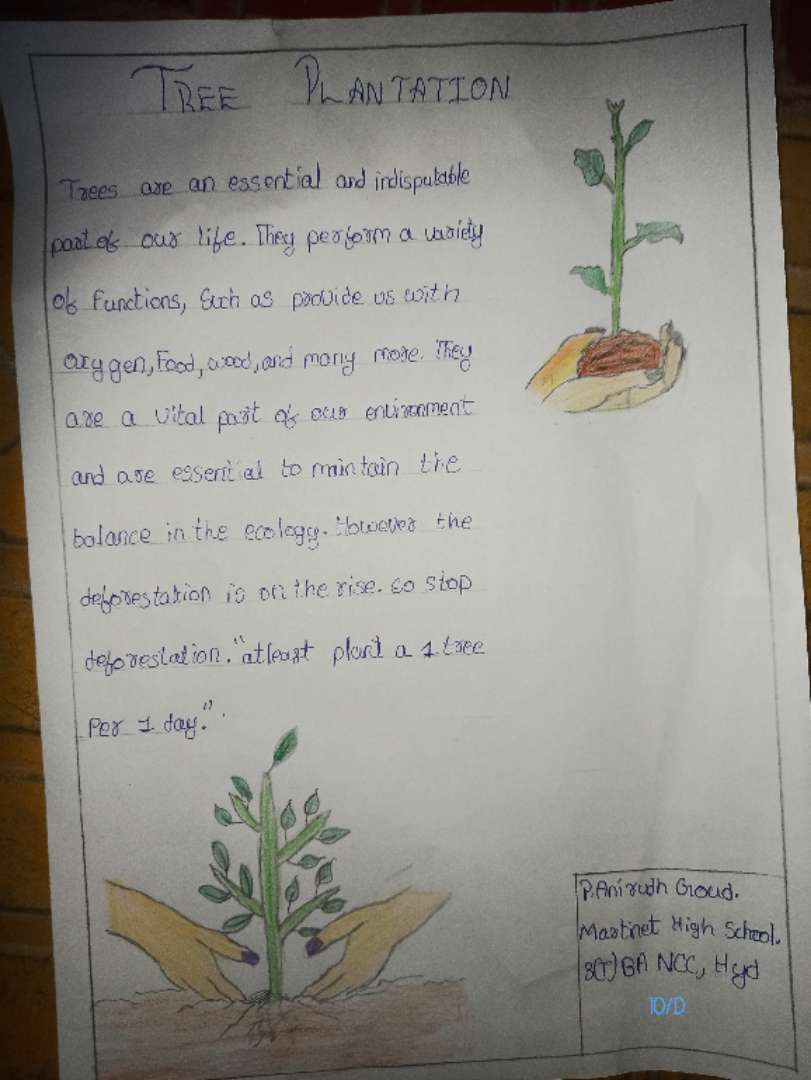 TREE PLANTATION
Trees are an essential and indisputable
part of our life. They perform a variety
of functions, Such as provide us with
oxygen, Food, wood, and many more. They
are a vital part of our environment
and are essential to maintain the
balance in the ecology. However the
deforestation is on the rise. so stop
deforestation. "atleast plant a 1 tree
Per 1 day."
P. Anirudh Groud.
Martinet High School.
8(T) BA NCC, Hyd
10/D